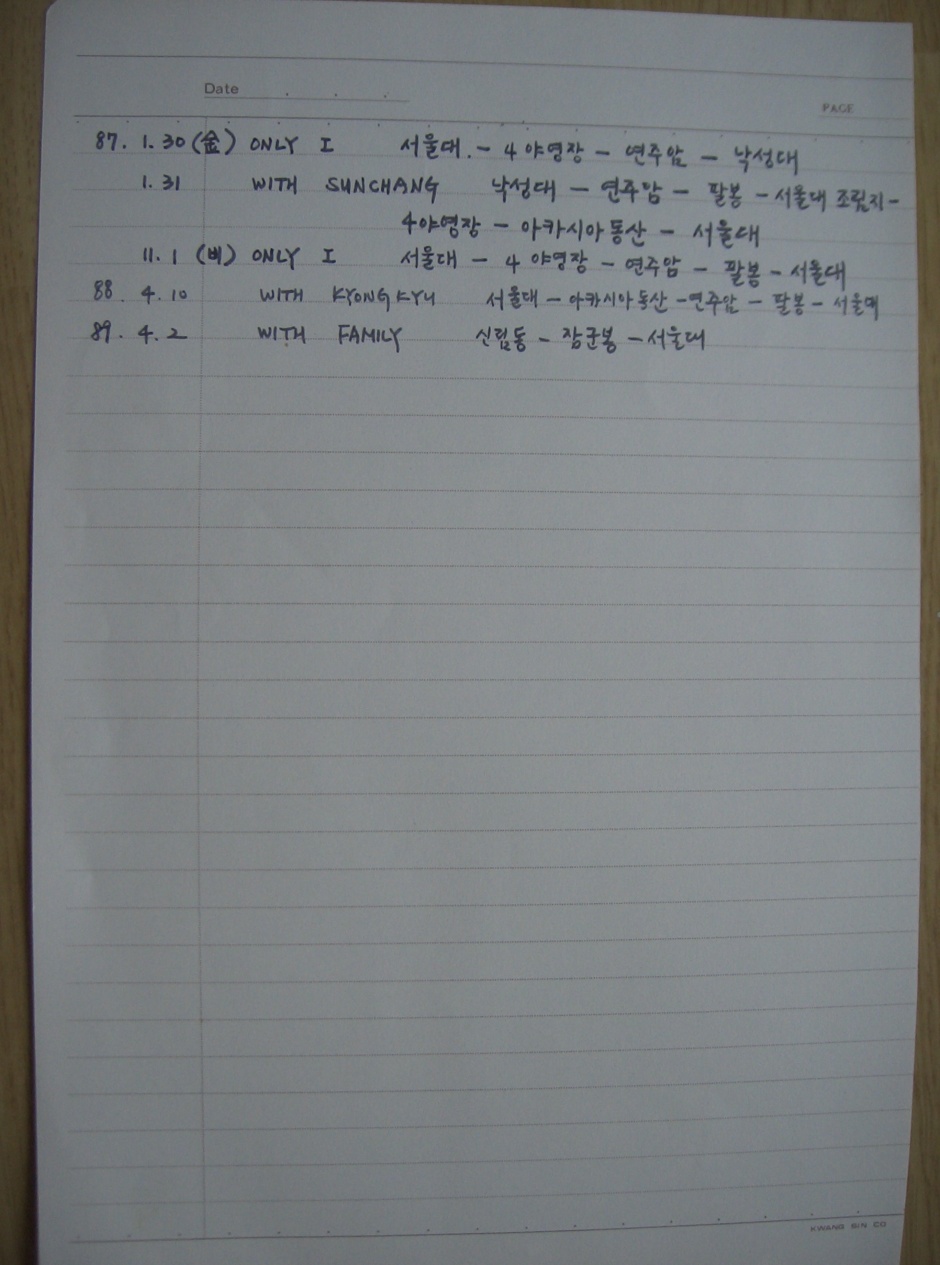 Date . . .
PAGE
87. 1. 30 (金) ONLY I 서울대. - 4 야영장 - 연주암 - 낙성대
1. 31 WITH SUNCHANG 낙성대 - 연주암 - 팔봉 - 서울대 조림지 -
4야영장 - 아카시아동산 - 서울대
11. 1 (비) ONLY I 서울대 - 4 야영장 - 연주암 - 팔봉 - 서울대
88. 4. 10 WITH KYONG KYU 서울대 - 아카시아동산 - 연주암 - 팔봉 - 서울대
89. 4. 2 WITH FAMILY 신림동 - 장군봉 - 서울대
KWANG SIN CO